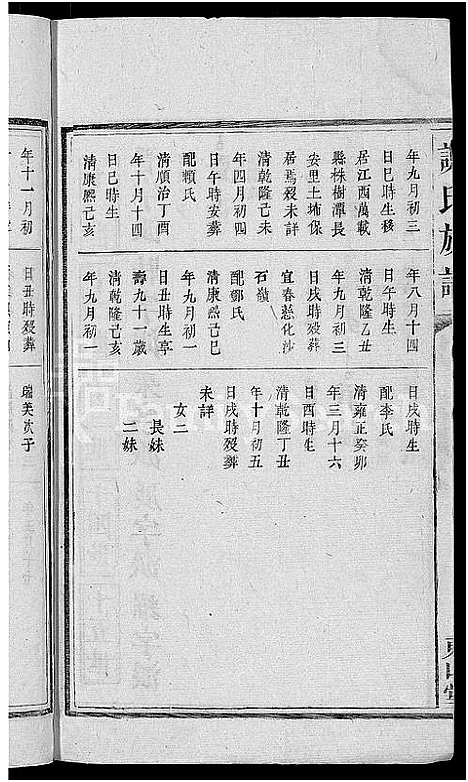 謝氏族譜
年九月初三
日巳時生移
居江西萬載
縣株樹潭長
安里土埇保
居焉殁未詳
清乾隆己未
年四月初四
日午時安葬
配賴氏
清順治丁酉
年十月十四
日巳時生
清康熙己亥
年八月十四
日午時生
清乾隆乙丑
年九月初三
日戌時殁葬
宜春慈化沙
石嶺
配鄭氏
清康熙己巳
年九月初一
日丑時生享
壽九十一歲
清乾隆己亥
年九月初一
日戌時生
配李氏
清雍正癸卯
年三月十六
日酉時生
清乾隆丁丑
年十月初五
日戌時殁葬
未詳
女二
長妹
二妹
年十一月初
日丑時殁葬
瑞美次子